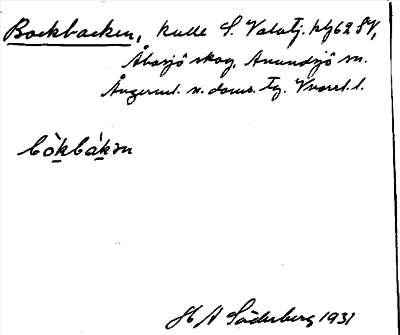 Bockbacken, kulle S. Valatj. htj62 SV,
Åbosjö skog, Anundsjö sn.
Ångerml. n. doms. tg. Vnorrl. l.
bòkbákən
H A Söderberg 1931